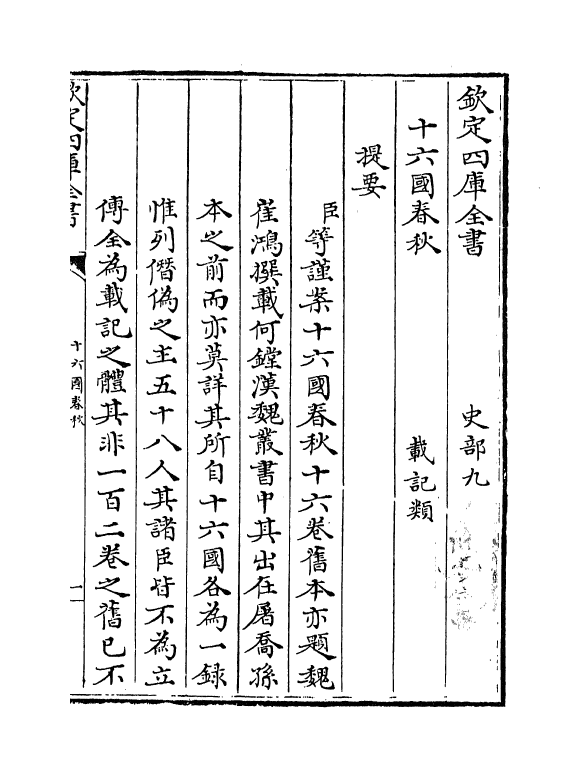 欽定四庫全書　史部九
十六國春秋　載記類
提要
臣等謹案十六國春秋十六卷舊本亦題魏
崔鴻撰載何鏜漢魏叢書中其出在屠喬孫
本之前而亦莫詳其所自十六國各為一錄
惟列僭偽之主五十八人其諸臣皆不為立
傳全為載記之體其非一百二卷之舊已不
欽定四庫全書　十六國春秋　一